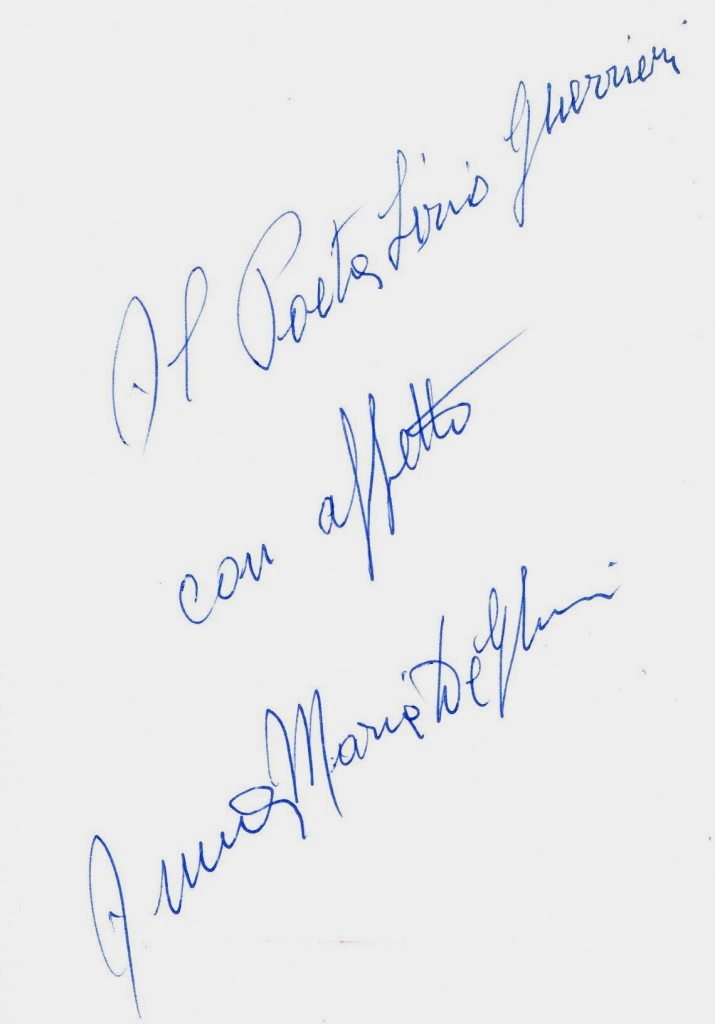 Al Poeta Livio Guerrieri
con affetto
Anna Maria De Ghini